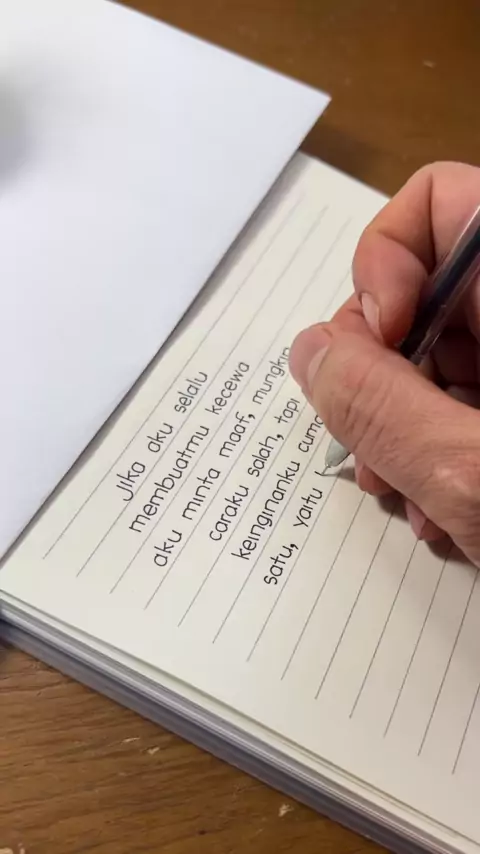 Jika aku selalu
membuatmu kecewa
aku minta maaf, mungkin
caraku salah, tapi
keinginanku cuma
satu, yaitu